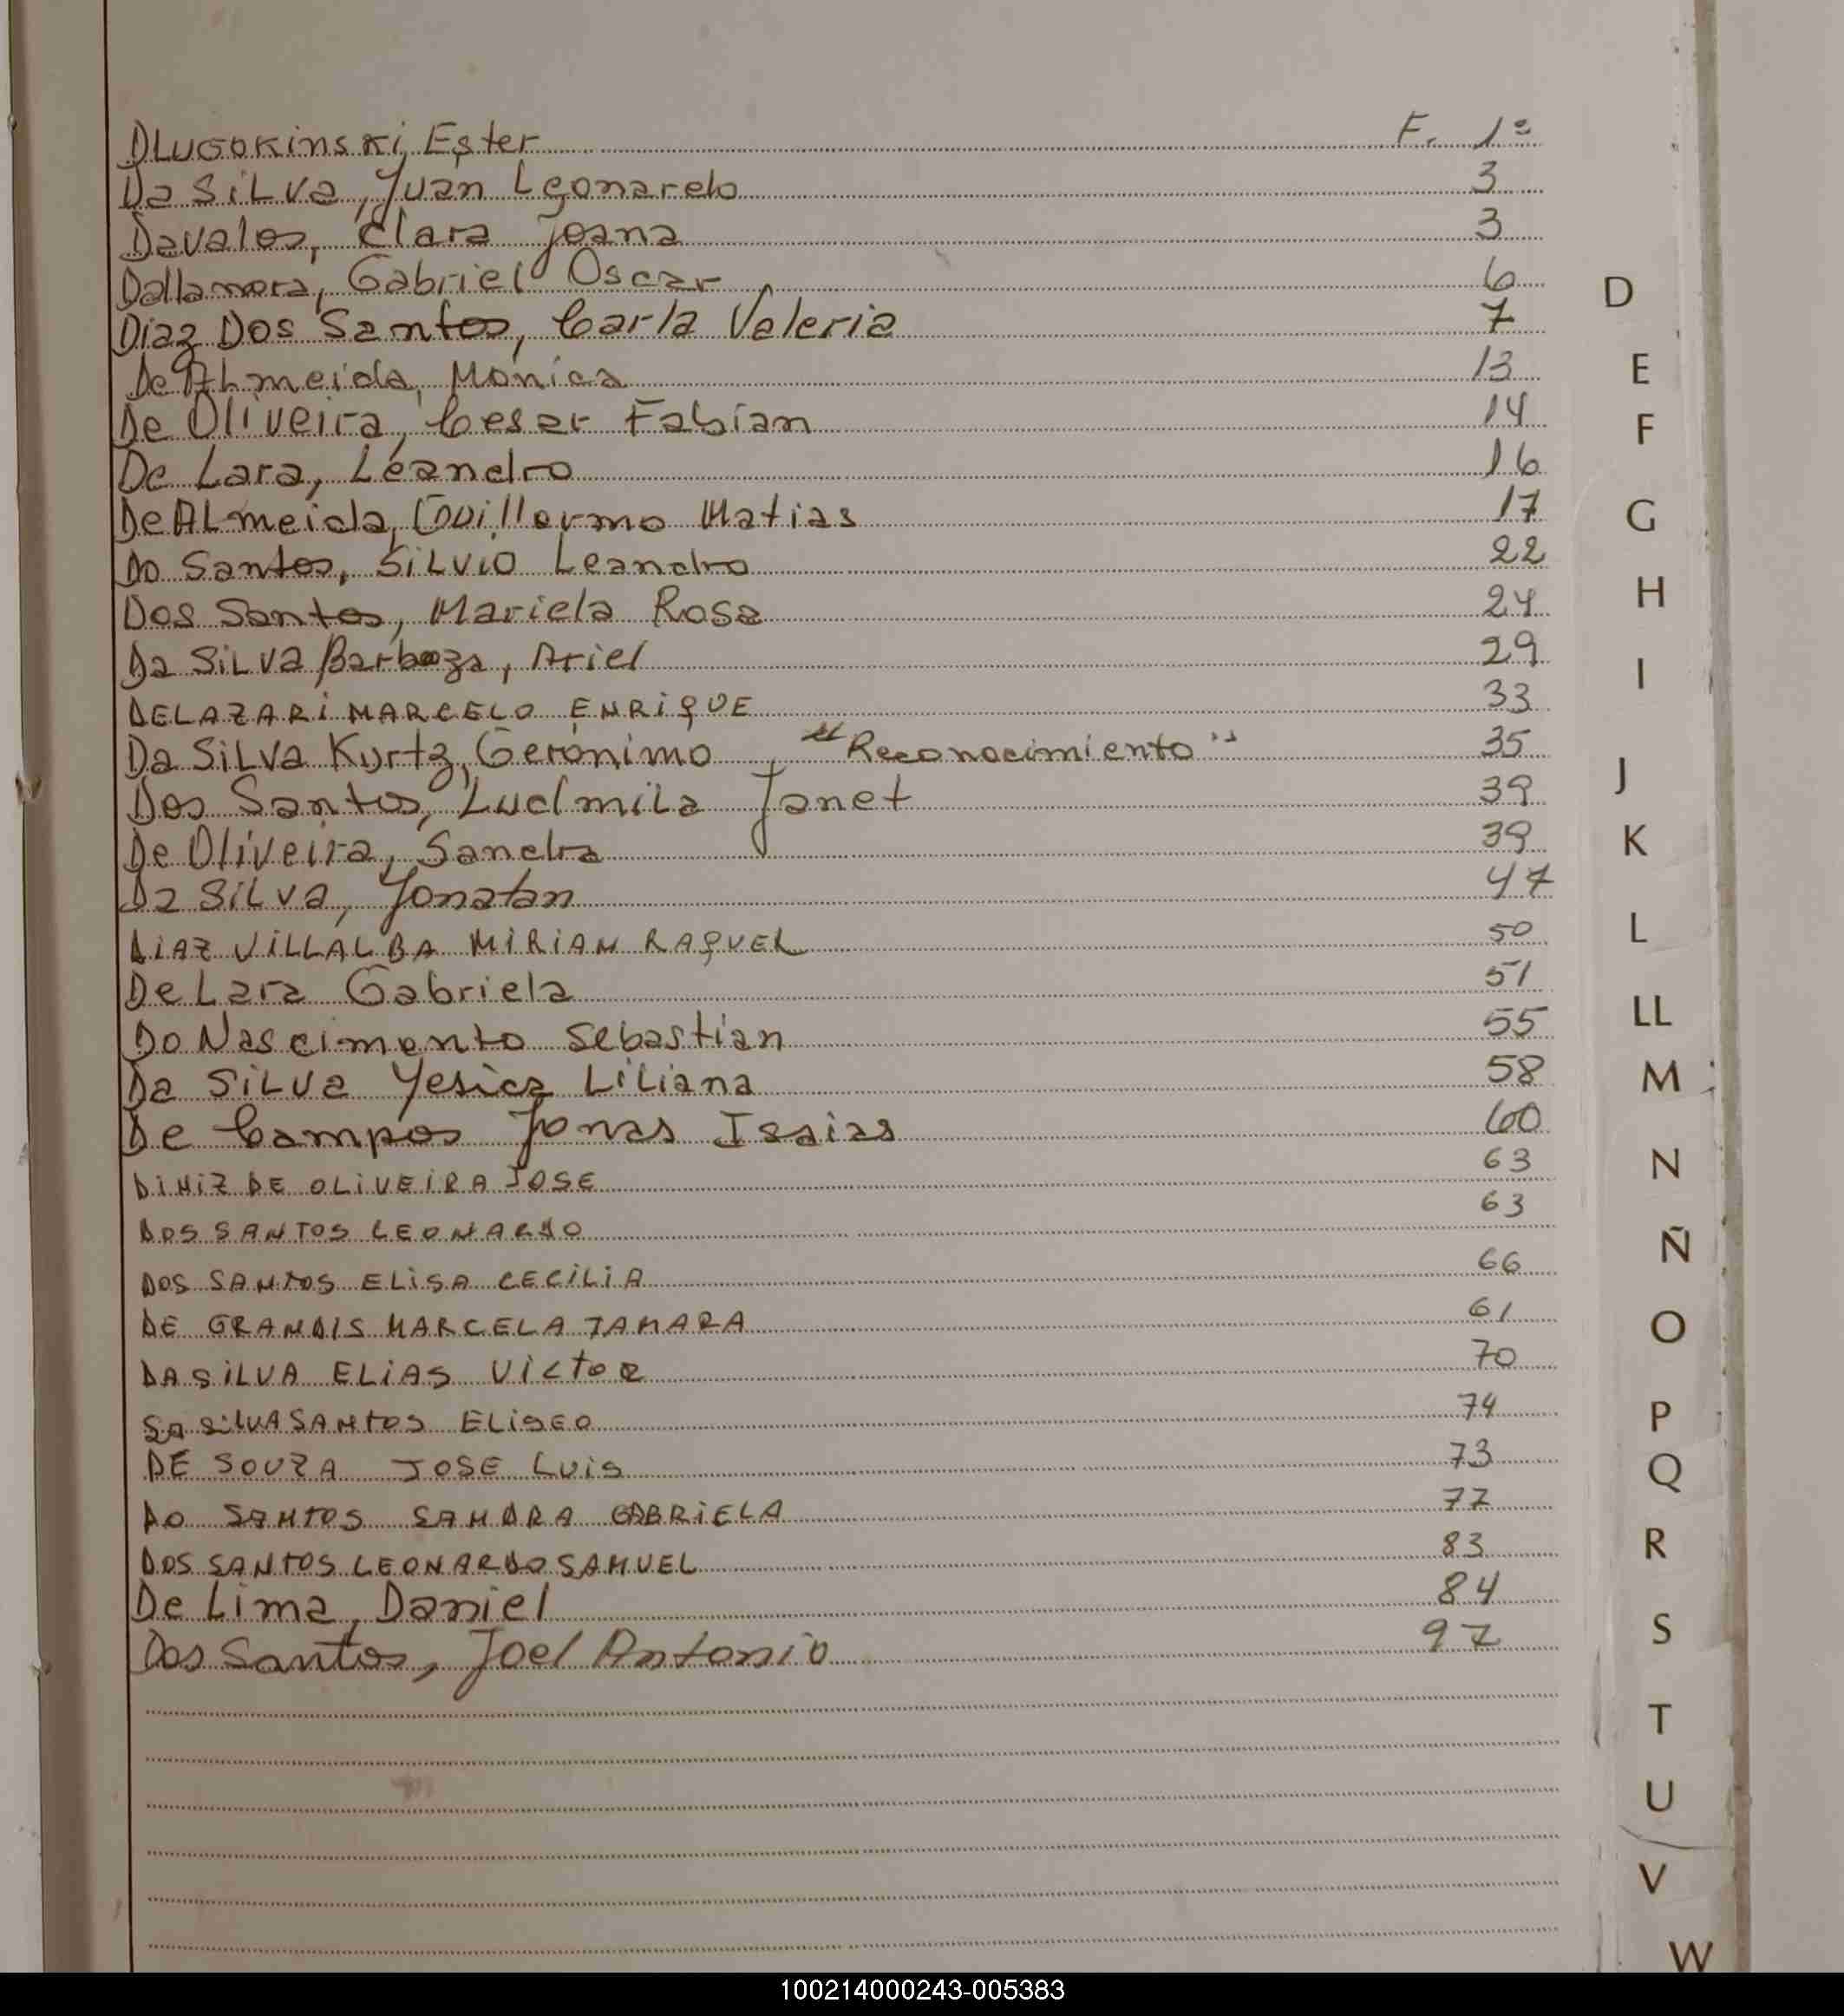 DLUGOKinski, Ester F. 1º
Da SiLva, Juan Leonardo 3
Davalos, Clara Joana 3
Dallamora, Gabriel Oscar 6
Diaz Dos Santos, Carla Valeria 7
De ALmeida, Monica 13
De Oliveira, Cesar Fabian 14
De Lara, Leandro 16
De ALmeida, Guillermo Matias 17
Do Santos, SiLvio Leandro 22
Dos Santos, Mariela Rosa 24
Da SiLva Barboza, Ariel 29
DELAZARI MARCELO ENRIQUE 33
Da SiLva Kurtz, Gerónimo "Reconocimiento" 35
Dos Santos, LudmiLa Janet 39
De Oliveira, Sandra 39
Da SiLva, Jonatan 47
DIAZ VILLALBA MIRIAN RAQUEL 50
De Lara Gabriela 51
Do Nascimento Sebastian 55
Da SiLva Yesica LiLiana 58
De Campos Jonas Isaias 60
DINIZ DE OLIVEIRA JOSE 63
DOS SANTOS LEONARDO 63
DOS SANTOS ELISA CECILIA 66
DE GRANDIS MARCELA TAMARA 61
DA SILVA ELIAS VICTOR 70
DA SILVA SANTOS ELISEO 74
DE SOUZA JOSE LUIS 73
DO SANTOS SANDRA GABRIELA 77
DOS SANTOS LEONARDO SAMUEL 83
De Lima, Daniel 84
Dos Santos, Joel Antonio 97
D
E
F
G
H
I
J
K
L
LL
M
N
Ñ
O
P
Q
R
S
T
U
V
W
100214000243-005383